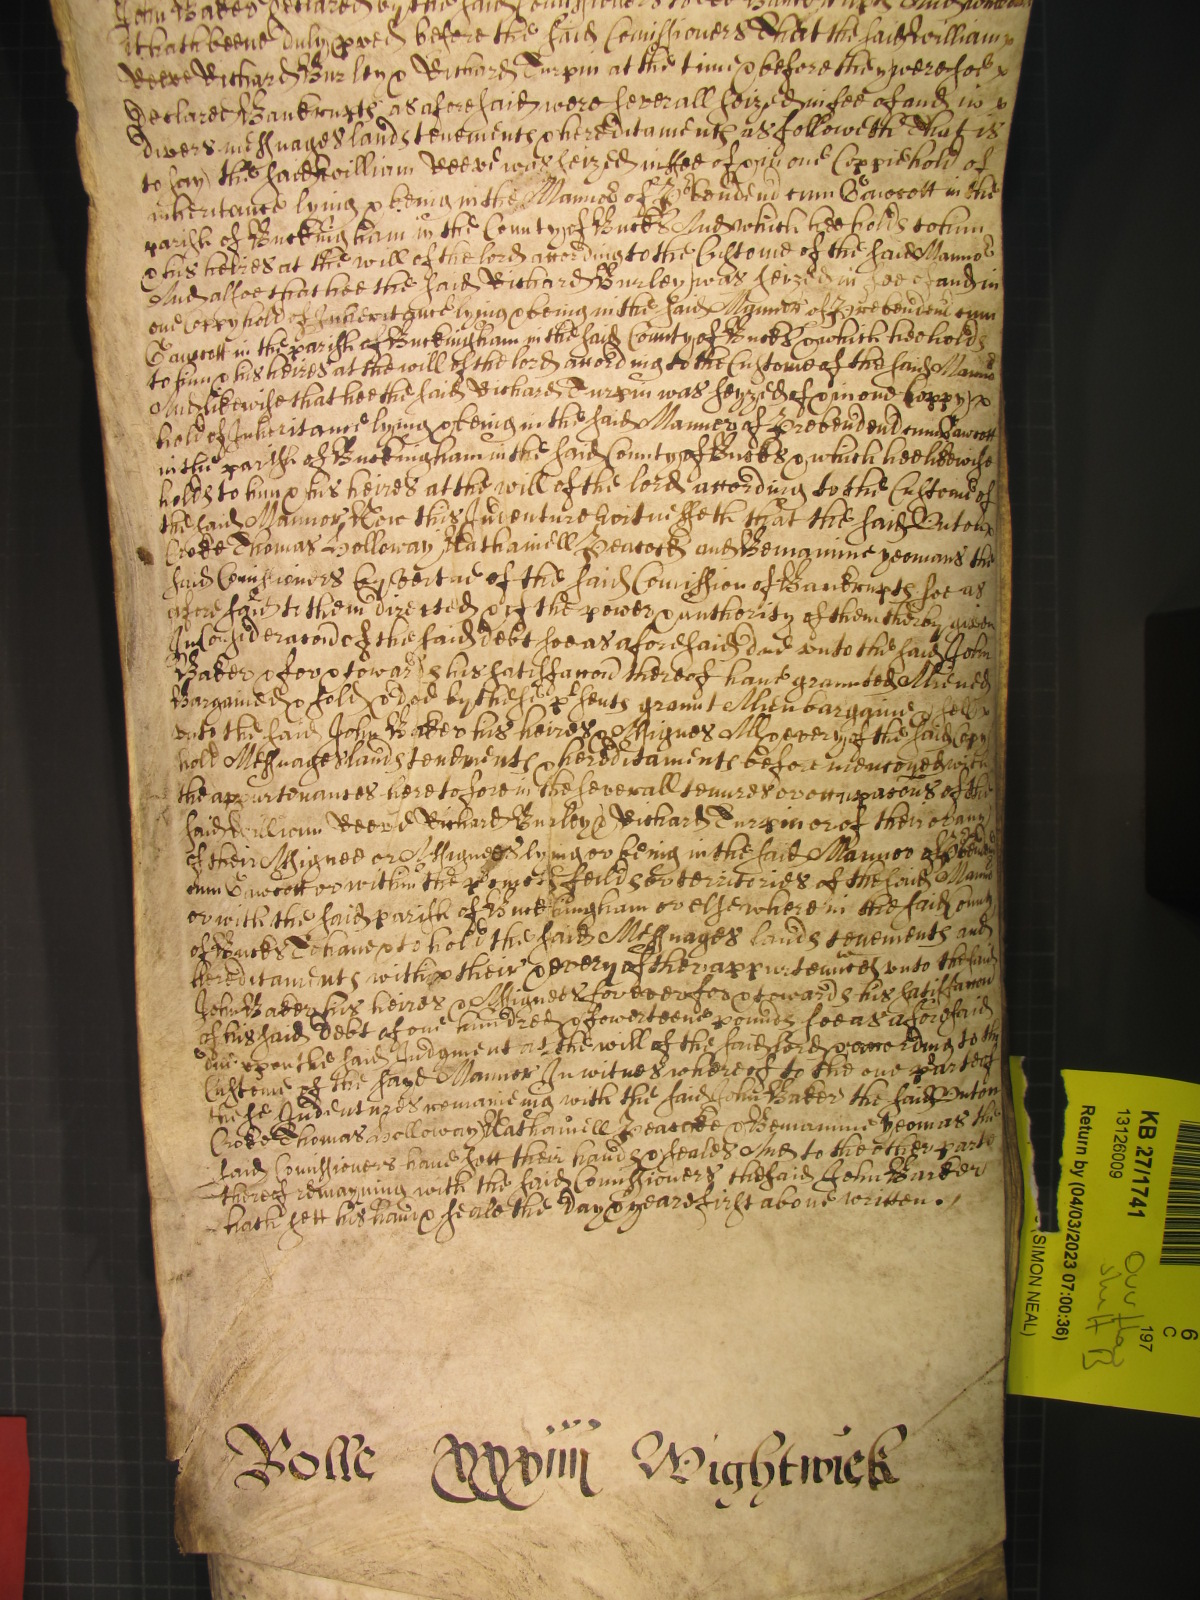 John Baker declared by the said Comissioners to bee
it hath beene duly proved before the said Comissioners That the said William
Reeve Richard Burley & Richard Turpin at the time & before they were soe
declared Bankrupts as aforesaid were severall seized in fee of and in
divers messuages lands tenements & hereditaments as followeth That is
to say the said William Reeve was seized in ffee of & in one Coppiehold of
inheritance lying & being in the Mannor of Prebendend cum Gawcott in the
parish of Buckingham in the County of Bucks And which hee holds to him
& his heires at the will of the lord according to the Custome of the said Mannor
And alsoe that hee the said Richard Burley was seyzed in fee of and in
one Coppyhold of Inheritance lying & being in the said Mannor of Prebendend cum
Gawcott in the parish of Buckingham in the said County of Bucks & which hee holds
to him & his heires at the will of the lord according to the Custome of the said Mannor
And likewise that hee the said Richard Turpin was seyzed of & in one Coppy
hold of Inheritance lying & being in the said Mannor of Prebendend cum Gawcott
in the parish of Buckingham in the said County of Bucks & which hee likewise
holds to him & his heires at the will of the lord according to the Custome of
the said Mannor, Now this Indenture Witnesseth that the said Unton
Croke Thomas Holloway Nathaniell Peacock and Beniamine Yeomans the
said Comissioners by vertue of the said Comission of Bankrupts soe as
aforesaid to them directed & of the power & authority of them therby given
In Consideracon of the said debt soe as aforesaid due unto the said John
Baker & for & towards his satisfaccon thereof have graunted Aliened
Bargained & sold & doe by these presents graunt Alien bargaine & sell
unto the said John Baker his heires & Assignes All & every of the said Copy
hold Messuages lands tenements & hereditaments before menconed with
the appurtenances heretofore in the severall tenures or occupacons of the
said William Reeve Richard Burley & Richard Turpin or of their or any
of their Assignee or Assignees lying or being in the said Mannor of Prebend
cum Gawcott or within the feilds or territories of the said Mannor
or with the said parish of Buckingham or elsewhere in the said County
of Bucks To have & to hold the said Messuages lands tenements and
hereditaments with & their & every of their appurtenances unto the said
John Baker his heires & Assignes for ever for & towards his satisfaccon
of his said debt of one hundred & fowerteene pounds soe as aforesaid
due upon the said Judgment at the will of the said lord & according to the
Custome of the sayd Mannor In witnes whereof to the one parte of
these Indentures remaineing with the said John Baker the said Unton
Croke Thomas Holloway Nathaniell Peacocke & Beniamine Yeomas the
said Comissioners have sett their hands & seales And to the other parte
thereof remayning with the said Comissioners the said John Barker
hath sett his hand & seale the day & yeare first above written.
Rolle xxxiiii Wightwick
KB 27/1741
13126009
Return by (04/03/2023 07:00:36)
(SIMON NEAL)
197
6
C